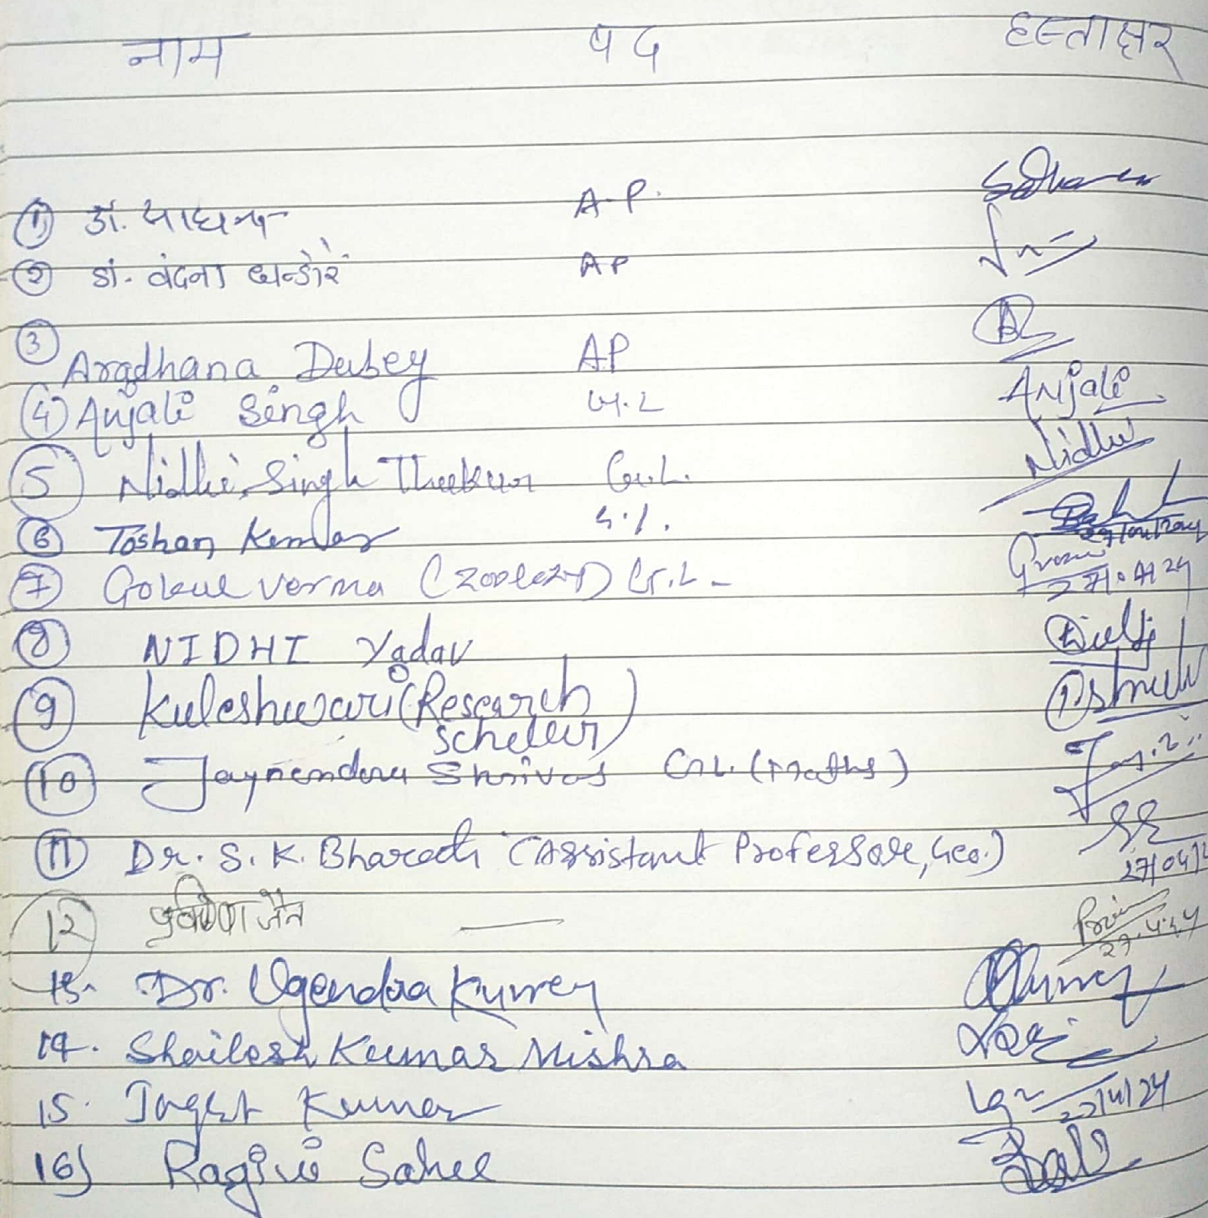 नाम पद हस्ताक्षर
① डॉ. साधना A.P. Sadhana
② डॉ. वंदना AP
③ Aradhana Dubey A.P
④ Anjali Singh G.L Anjali
⑤ Nidhi Singh Thakur G.L. Nidhi
⑥ Toshan Kumar
⑦ Gokul Verma (Zoology) G.L - 27.04.24
⑧ NIDHI Yadav
⑨ Kuleshwari (Research
scholar)
⑩ Jaynendra Shrivas G.L. (Maths)
⑪ Dr. S. K. Bharati (Assistant Professor, Geo.) 27/04/2
⑫ जैन — 27.4.24
13. Dr. Ugendra Kurrey
14. Shailesh Kumar Mishra
15. Jagat Kumar 27/4/24
16) Ragini Sahu